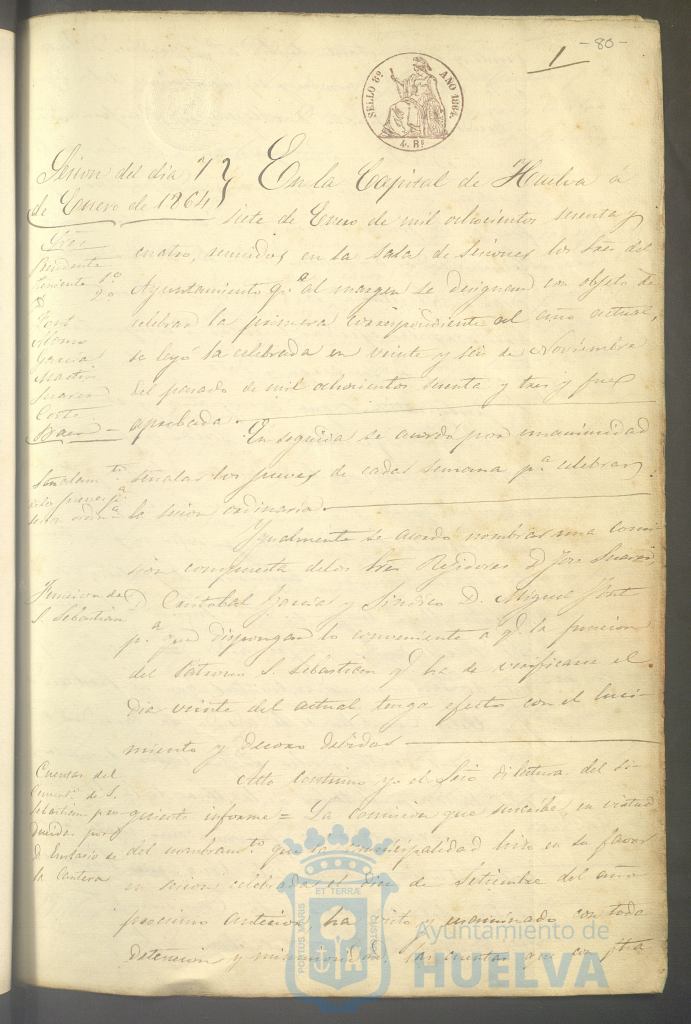 1 -80-
SELLO 8º AÑO 1864.
4. Rs
Sesion del dia 7
de Enero de 1864
En la Capital de Huelva á
siete de Enero de mil ochocientos sesenta y
cuatro, reunidos en la Sala de Sesiones los Sres del
Ayuntamiento q.e al margen se designan con objeto de
celebrar la primera correspondiente al año actual,
se leyó la celebrada en veinte y seis de Noviembre
del pasado de mil ochocientos sesenta y tres y fue
aprobada.
Sres
Presidente
Teniente 1º
D 2º
Font
Alonso
Garcia
Martin
Suarez
Coste
Baez
En seguida se acordó por unanimidad
señalar los jueves de cada semana p.a celebrar
la sesion ordinaria.
Señalam.to
de los jueves p.a
sesion ordin.a
Igualmente se acordó nombrar una comi-
sion compuesta de los Sres Regidores D. Jose Suarez
D. Cristobal Garcia y Sindico D. Miguel Font
p.a que dispongan lo conveniente á q.e la funcion
del Patrono S. Sebastian q.e ha de verificarse el
dia veinte del actual, tenga efecto con el luci-
miento y decoro debidos
Funcion de
S. Sebastian
Acto continuo yo el Srio di lectura del si-
guiente informe = La comision que suscribe, en virtud
del nombram.to que la municipalidad hizo en su favor
en sesion celebrada el de Setiembre del año
procsimo anterior, ha visto y examinado con toda
detencion y minuciosidad, las cuentas que con
Cuentas del
Cement.o de S.
Sebastian pro
ducidas por
D. Eustasio de
la Cantera
PORTUS MARIS ET TERRÆ CUSTODIA
Ayuntamiento de
HUELVA